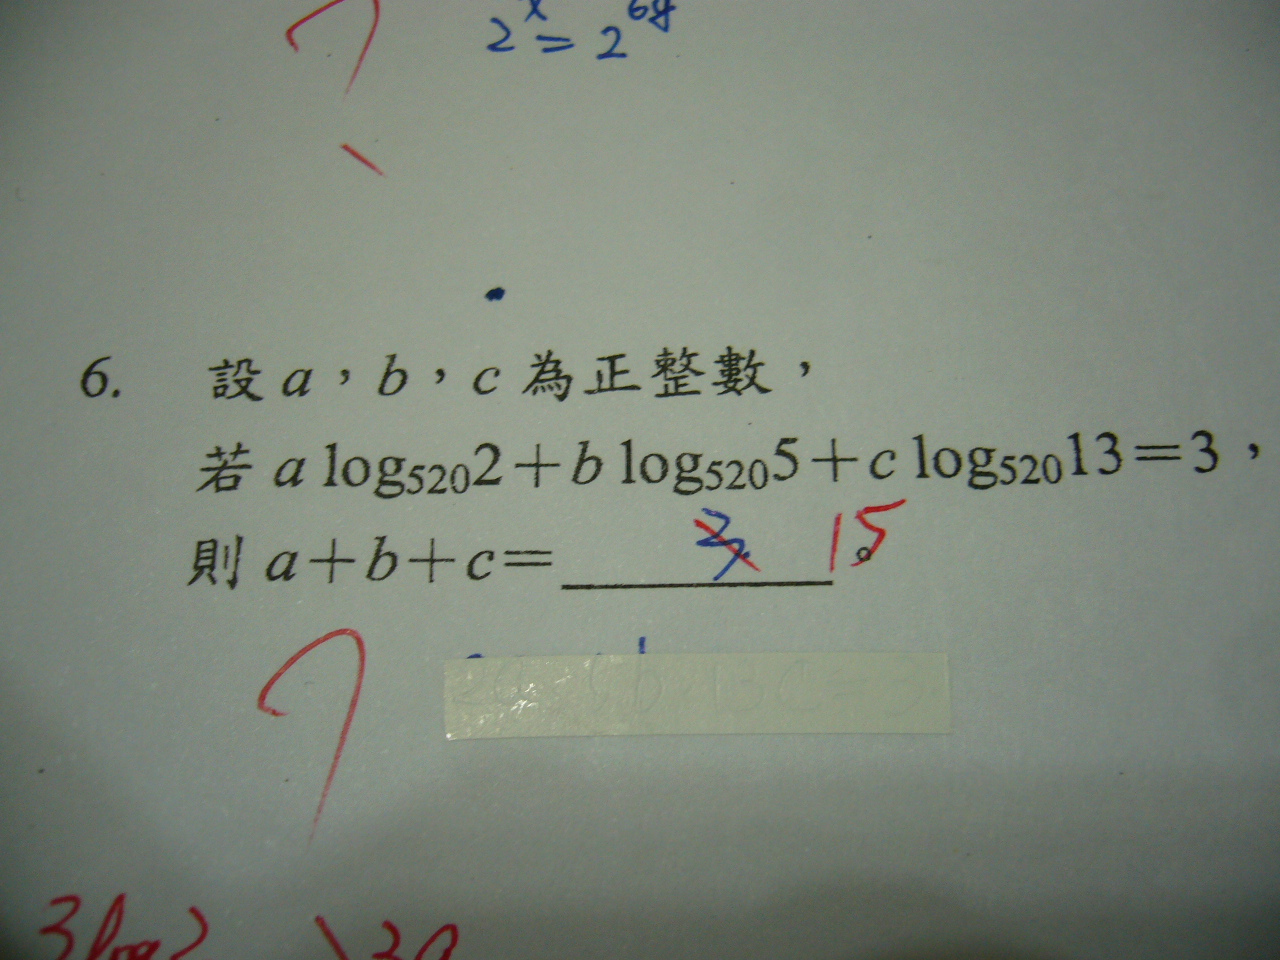 2^x = 2^6y
6. 設 a，b，c 為正整數，
若 a log₅₂₀2＋b log₅₂₀5＋c log₅₂₀13＝3，
則 a＋b＋c＝ 3 15。
3log2